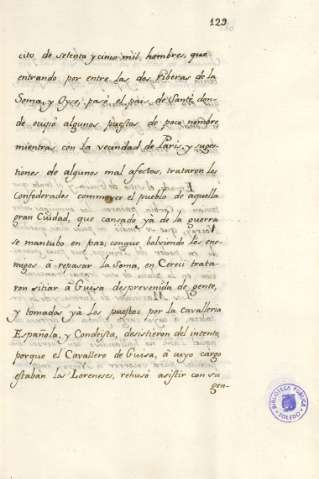 129
cito de setenta y cinco mil hombres, que
entrando por entre las dos Riberas de la
Soma, y Oyse, pasò el pais de Santè, don-
de ocupò algunos puestos de poco nombre
mientras con la vecindad de Paris, y suges-
tiones de algunos mal afectos, trataron los
Confederados commover el pueblo de aquella
gran Ciudad, que cansado yà de la guerra
se mantubo en paz; conque bolviendo los ene-
migos à repasar la Soma, en trata-
ron sitiar à Guisa desprevenida de gente,
y tomados ya los puestos por la cavalleria
Española, y Condeista, desistieron del intento
porque el Cavallero de Guisa, à cuyo cargo
estaban los Loreneses, rehusò asistir con su
gen-
BIBLIOTECA PUBLICA
TOLEDO